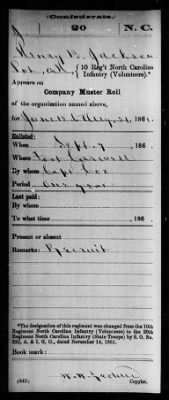 (Confederate.)
J 20 N. C.
Henry B. Jackson
Pvt, Co. 10 Reg't North Carolina
Infantry (Volunteers).*
Appears on
Company Muster Roll
of the organization named above,
for June 18 to Aug. 31, 1861.
Enlisted:
When Sept. 7, 186 .
Where Fort Caswell
By whom Capt.
Period One year
Last paid:
By whom
To what time , 186 .
Present or absent
Remarks: Recruit
*The designation of this regiment was changed from the 10th
Regiment North Carolina Infantry (Volunteers) to the 20th
Regiment North Carolina Infantry (State Troops) by S. O. No.
A. & I. G. O., dated November 14, 1861.
Book mark:
W. W.
Copyist.